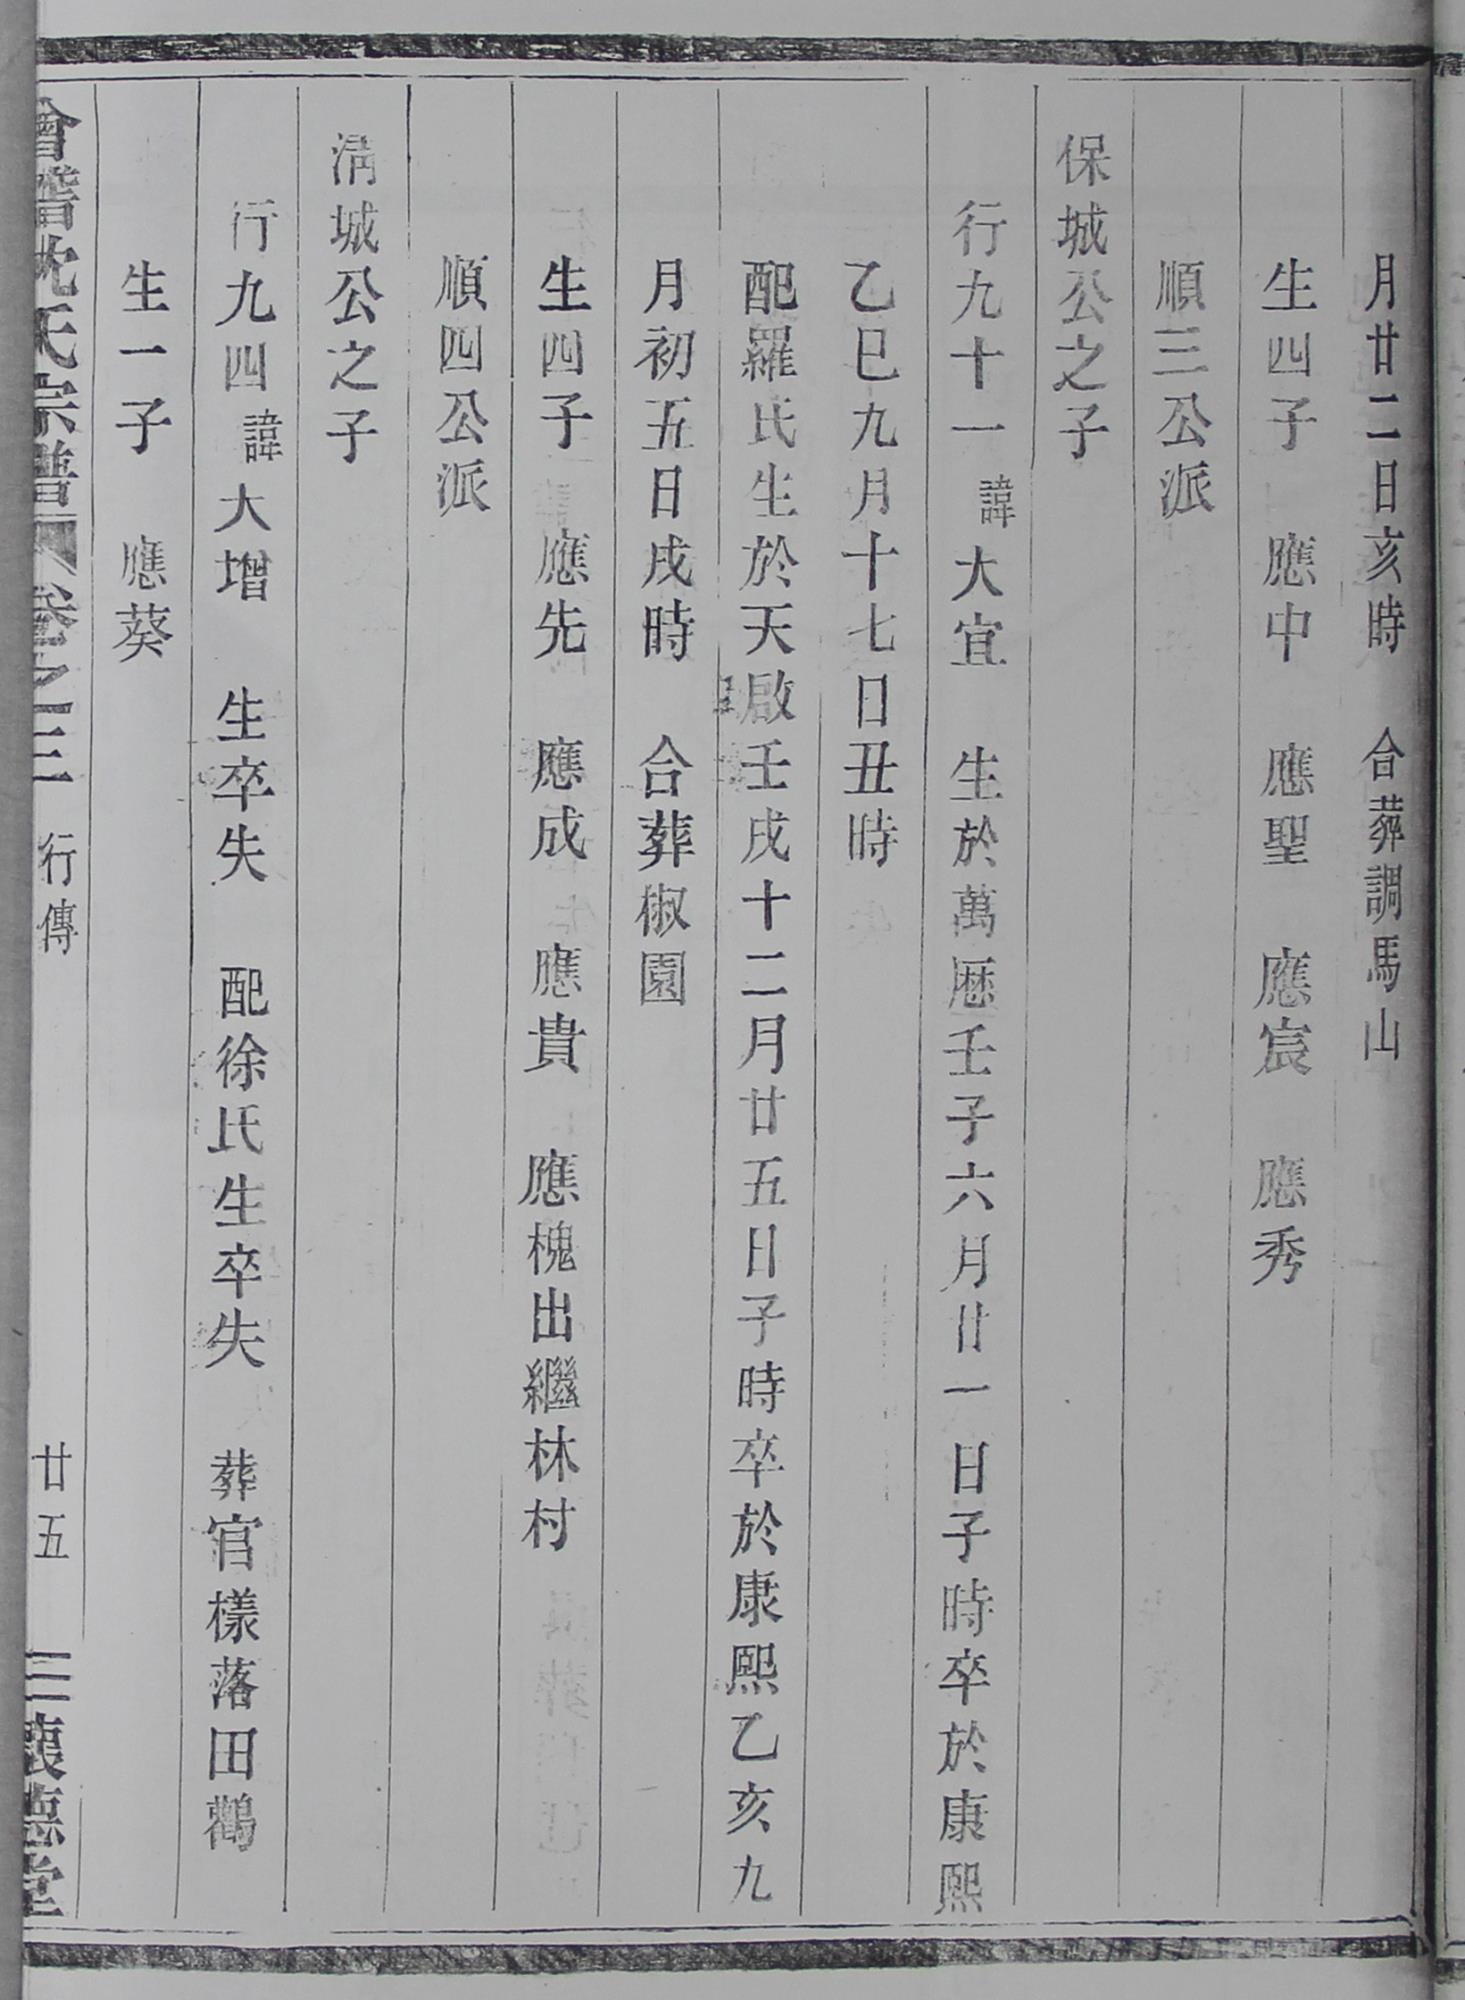 月廿二日亥時　合葬調馬山
生四子　應中　應聖　應宸　應秀
順三公派
保城公之子
行九十一諱大宜　生於萬厯壬子六月廿一日子時卒於康熙
乙巳九月十七日丑時
配羅氏生於天啟壬戌十二月廿五日子時卒於康熙乙亥九
月初五日戌時　合葬椒園
生四子　應先　應成　應貴　應槐出繼林村
順四公派
淸城公之子
行九四諱大增　生卒失　配徐氏生卒失　葬官樣落田鸛
生一子　應葵
會稽沈氏宗譜　卷之三　行傳　廿五　三懷德堂